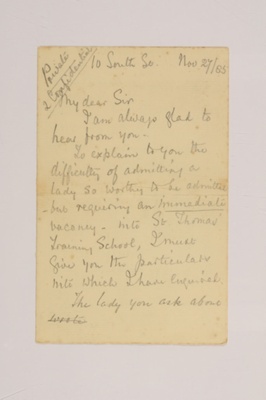 Private
& Confidential
10 South St. Nov 27/85
My dear Sir
I am always glad to
hear from you.
To explain to you the
difficulty of admitting a
lady so worthy to be admitted
- but requiring an immediate
vacancy - into St. Thomas'
Training School, I must
give you the particulars
into which I have enquired.
The lady you ask about
wrote